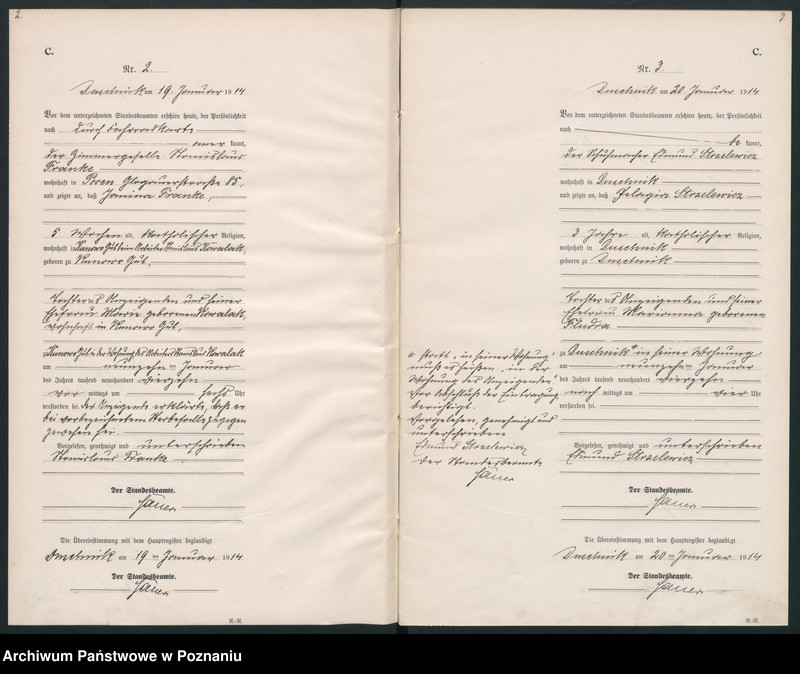 2.
C.
Nr. 2.
Duschnik am 19. Januar 1914
Vor dem unterzeichneten Standesbeamten erschien heute, der Persönlichkeit
nach durch Fahrradkarte
aner kannt,
der Zimmergeselle Stanislaus
Franke
wohnhaft in Posen Glogauerstraße 85,
und zeigte an, daß Janina Franke,
5 Wochen alt, katholischer Religion,
wohnhaft in Kunowo Gut beim Arbeiter Stanislaus Kowalak,
geboren zu Kunowo Gut,
Tochter des Anzeigenden und seiner
Ehefrau Marie geborenen Kowalak,
wohnhaft in Kunowo Gut,
Kunowo Gut in der Wohnung des Arbeiters Stanislaus Kowalak
am neunzehn ten Januar
des Jahres tausend neunhundert vierzehn
vor mittags um sechs Uhr
verstorben sei. Der Anzeigende erklärte, daß er
bei vorbezeichnetem Sterbefalle zugegen
gewesen sei.
Vorgelesen, genehmigt und unterschrieben
Stanislaus Franke
Der Standesbeamte.
Die Übereinstimmung mit dem Hauptregister beglaubigt
Duschnik am 19 ten Januar 1914
Der Standesbeamte.
R.-R.
3.
C.
Nr. 3.
Duschnik am 20. Januar 1914.
Vor dem unterzeichneten Standesbeamten erschien heute, der Persönlichkeit
nach
be kannt,
der Schuhmacher Edmund Strzelewicz
wohnhaft in Duschnik
und zeigte an, daß Pelagia Strzelewicz
3 Jahre alt, katholischer Religion,
wohnhaft in Duschnik
geboren zu Duschnik
Tochter des Anzeigenden und seiner
Ehefrau Marianna geborenen
zu Duschnik* in seiner Wohnung
am neunzehn ten Januar
des Jahres tausend neunhundert vierzehn
nach mittags um vier Uhr
verstorben sei.
* statt „in seiner Wohnung“
muß es heißen „in der
Wohnung des Anzeigenden“
Vor Abschluß der Eintragung
berichtigt.
Vorgelesen, genehmigt und
unterschrieben
Edmund Strzelewicz
Der Standesbeamte
Vorgelesen, genehmigt und unterschrieben
Edmund Strzelewicz
Der Standesbeamte.
Die Übereinstimmung mit dem Hauptregister beglaubigt
Duschnik am 20 ten Januar 1914
Der Standesbeamte.
R.-R.
Archiwum Państwowe w Poznaniu